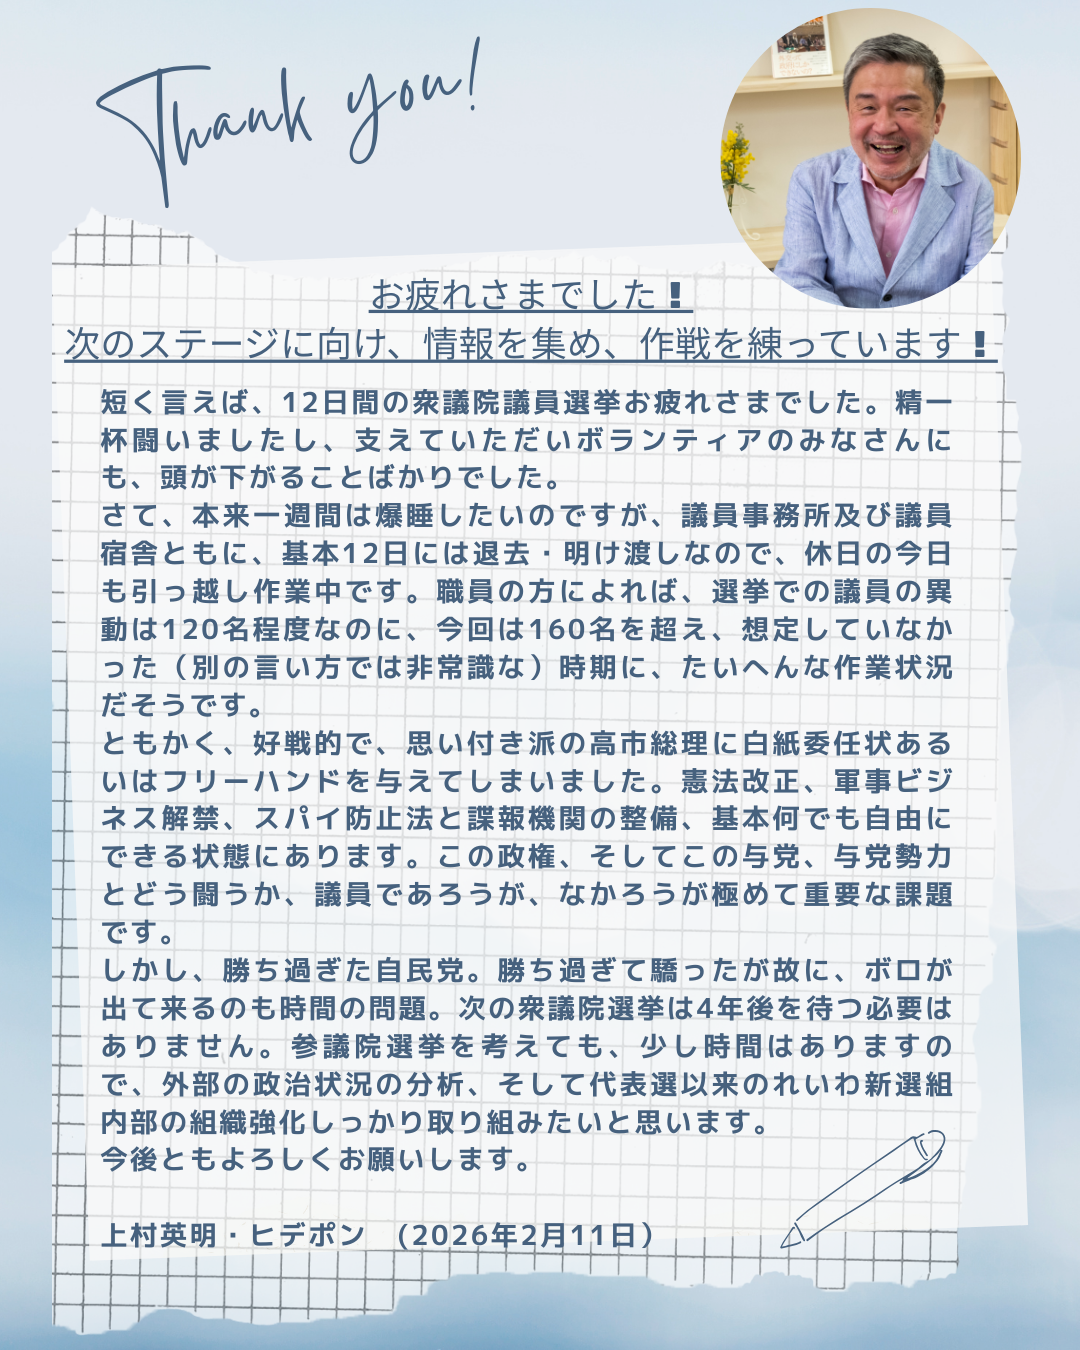 Thank you!
お疲れさまでした❗
次のステージに向け、情報を集め、作戦を練っています❗
短く言えば、12日間の衆議院議員選挙お疲れさまでした。精一
杯闘いましたし、支えていただいボランティアのみなさんに
も、頭が下がることばかりでした。
さて、本来一週間は爆睡したいのですが、議員事務所及び議員
宿舎ともに、基本12日には退去・明け渡しなので、休日の今日
も引っ越し作業中です。職員の方によれば、選挙での議員の異
動は120名程度なのに、今回は160名を超え、想定していなか
った（別の言い方では非常識な）時期に、たいへんな作業状況
だそうです。
ともかく、好戦的で、思い付き派の高市総理に白紙委任状ある
いはフリーハンドを与えてしまいました。憲法改正、軍事ビジ
ネス解禁、スパイ防止法と諜報機関の整備、基本何でも自由に
できる状態にあります。この政権、そしてこの与党、与党勢力
とどう闘うか、議員であろうが、なかろうが極めて重要な課題
です。
しかし、勝ち過ぎた自民党。勝ち過ぎて驕ったが故に、ボロが
出て来るのも時間の問題。次の衆議院選挙は4年後を待つ必要は
ありません。参議院選挙を考えても、少し時間はありますの
で、外部の政治状況の分析、そして代表選以来のれいわ新選組
内部の組織強化しっかり取り組みたいと思います。
今後ともよろしくお願いします。
上村英明・ヒデポン　(2026年2月11日）